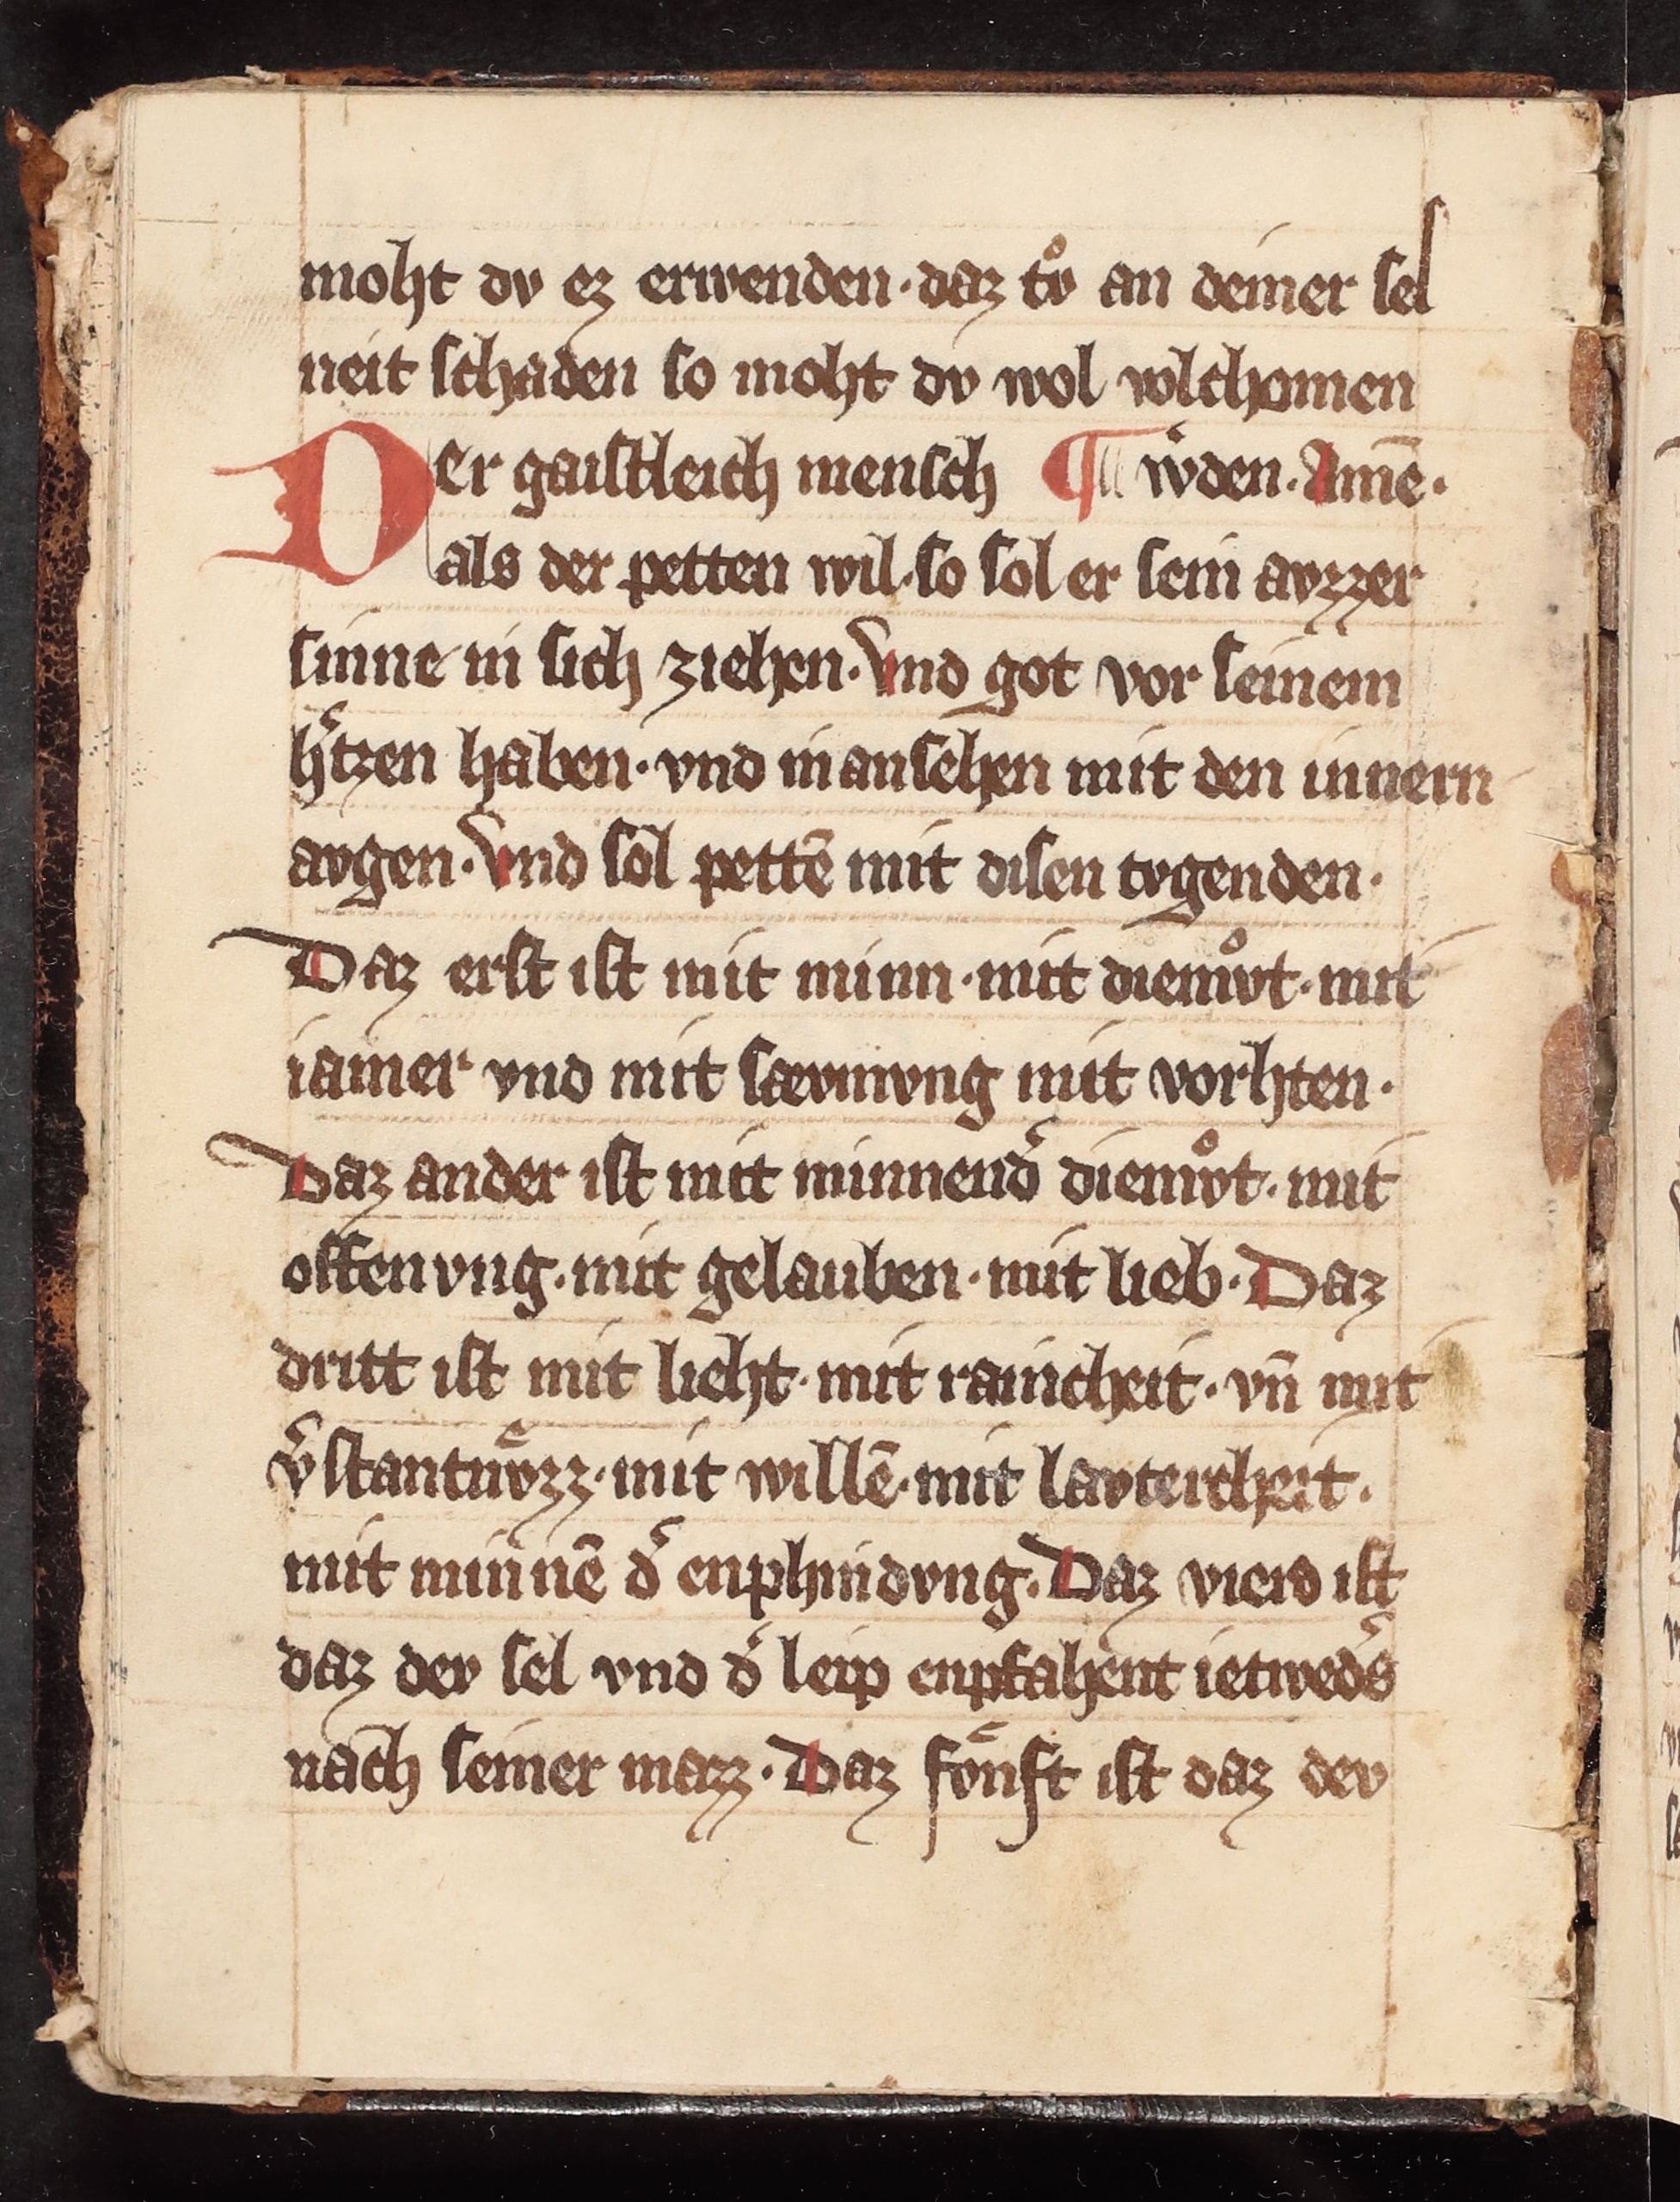 moht dv ez erwenden · daz tvͦ an deiner sel
neit schaden so moht dv wol volchomen
Der gaistleich mensch ¶ wͤden · Amē ·
als der petten wil · so sol er sein avzzer
sinne in sich ziehen · Vnd got vor seinem
hˢtzen haben · vnd in ansehen mit den innern
avgen · Vnd sol pettē mit disen tvgenden ·
Daz erst ist mit minn · mit diemvͦt · mit
iamer vnd mit sævmvng mit vorhten ·
Daz ander ist mit minnendˢ diemvͦt · mit
offenvng · mit gelauben · mit lieb · Daz
dritt ist mit lieht · mit rainicheit · vn̄ mit
vˢstantnvͤzz · mit willē · mit lavtercheit ·
mit minnē dˢ enphindvng · Daz vierd ist
daz dev sel vnd dˢ leip enpfahent ietwedˢs
nach seiner mazz · Daz fvͤnft ist daz dev